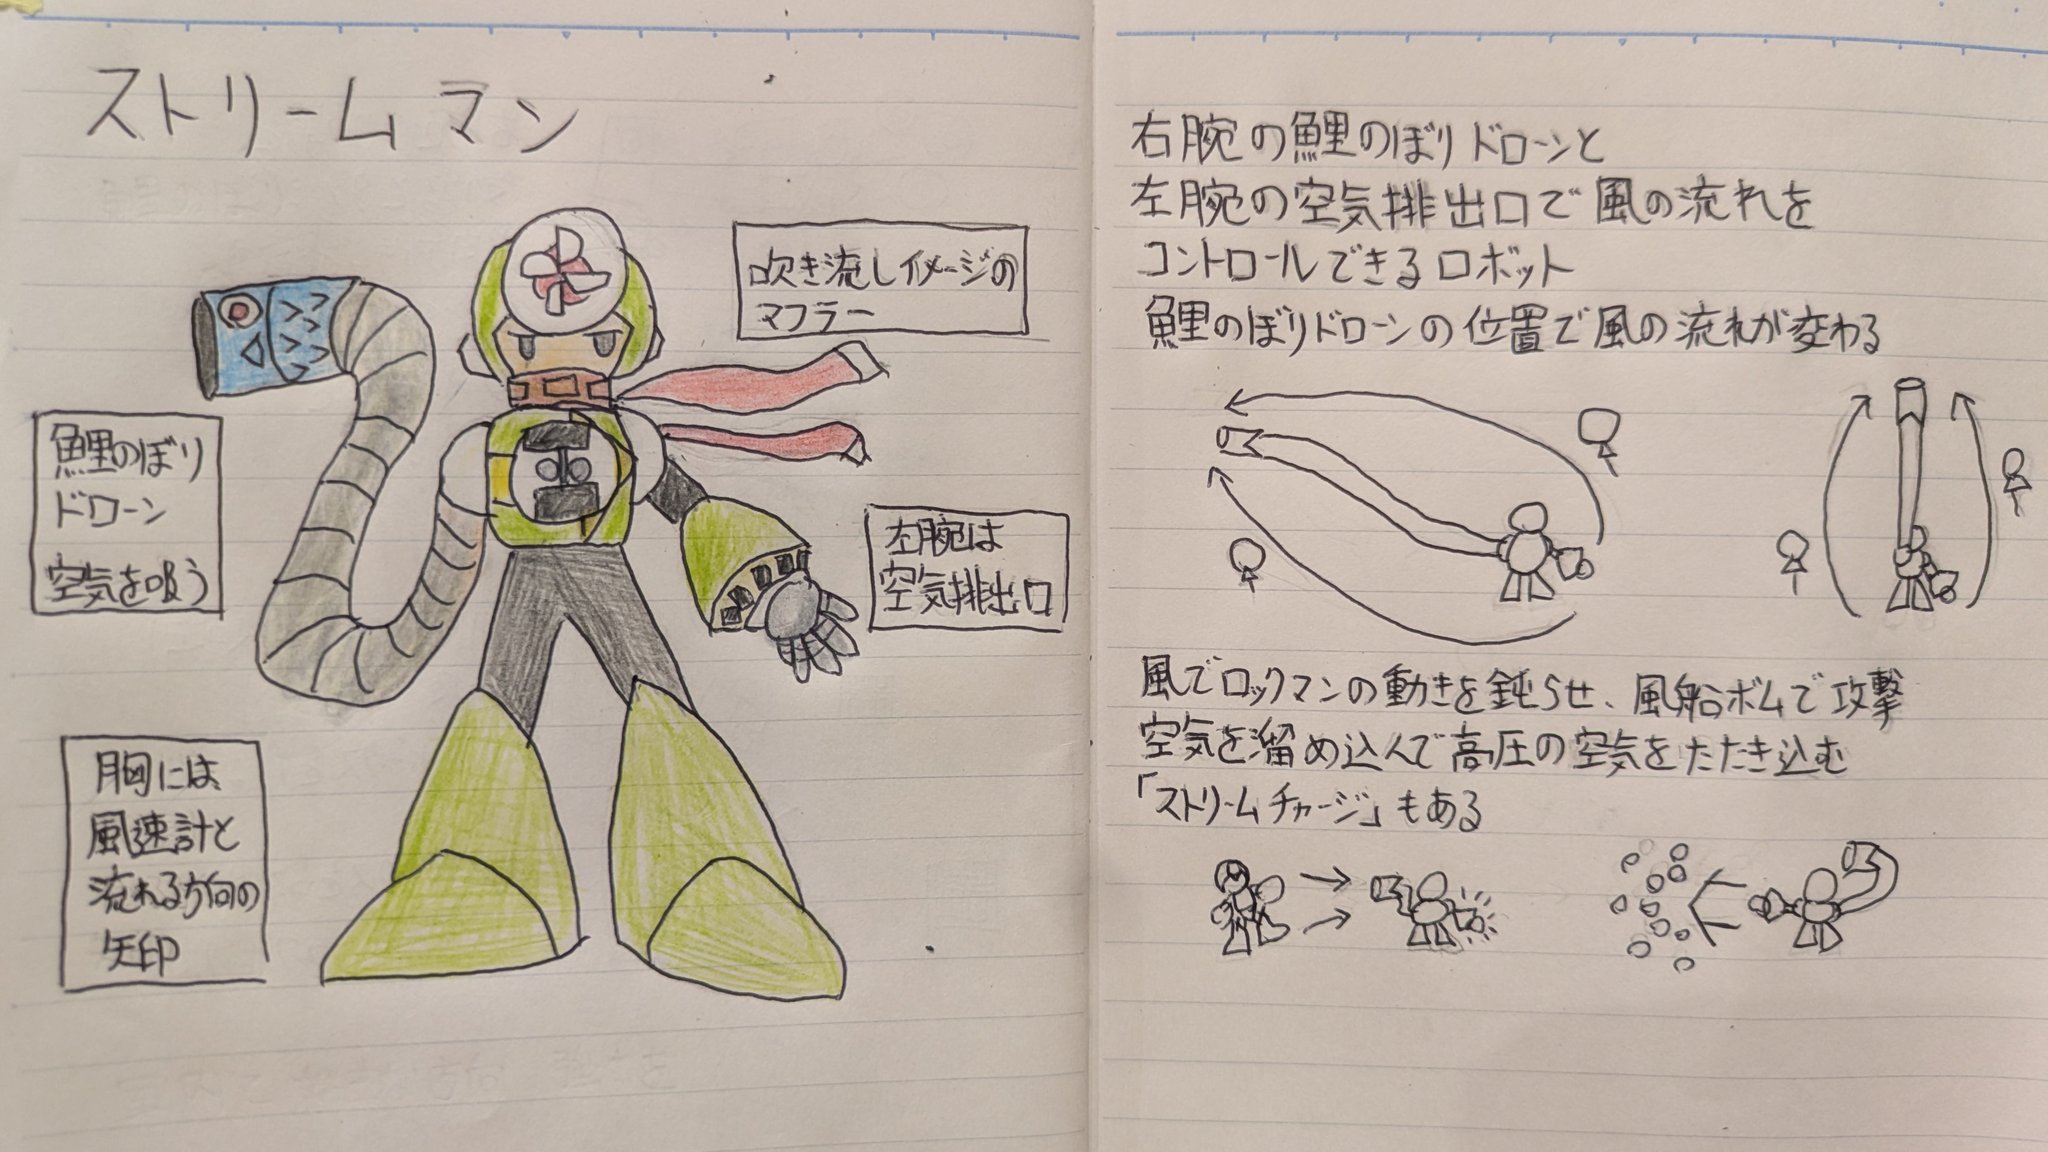 ストリームマン
吹き流しイメージの
マフラー
鯉のぼり
ドローン
空気を吸う
左腕は
空気排出口
胸には
風速計と
流れる方向の
矢印
右腕の鯉のぼりドローンと
左腕の空気排出口で風の流れを
コントロールできるロボット
鯉のぼりドローンの位置で風の流れが変わる
風でロックマンの動きを鈍らせ、風船ボムで攻撃
空気を溜め込んで高圧の空気をたたき込む
「ストリームチャージ」もある